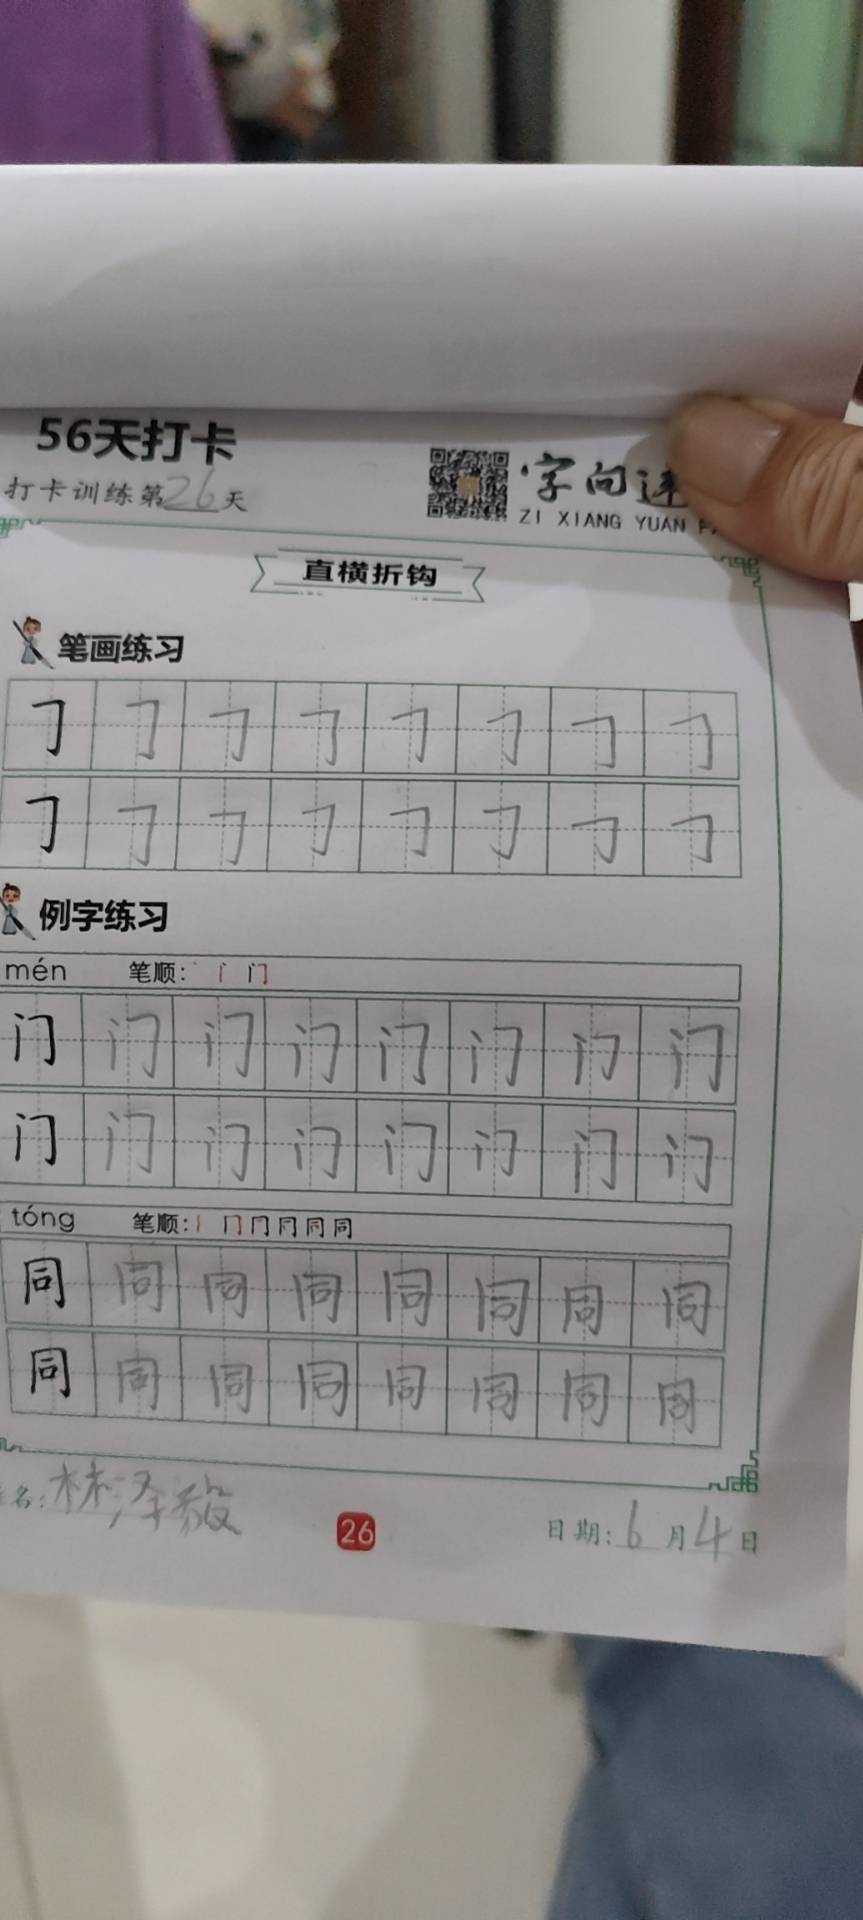 56天打卡
打卡训练第26天
字向速
ZI XIANG YUAN
直横折钩
笔画练习
㇆ ㇆ ㇆ ㇆ ㇆ ㇆ ㇆ ㇆
㇆ ㇆ ㇆ ㇆ ㇆ ㇆ ㇆ ㇆
例字练习
mén 笔顺: 丶 门
门 门 门 门 门 门 门 门
门 门 门 门 门 门 门 门
tóng 笔顺: 丨 冂 同 同
同 同 同 同 同 同 同 同
同 同 同 同 同 同 同 同
名: 林泽
26
日期: 6月4日